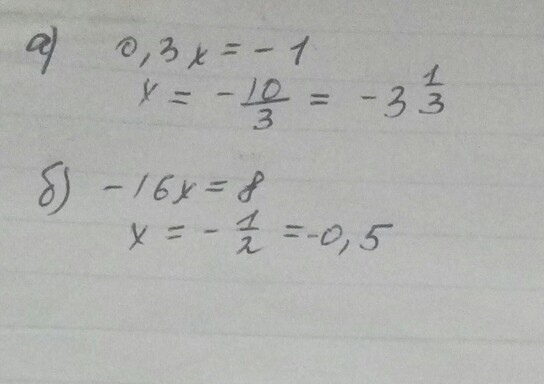 а) 0,3x = - 1
x = - 10/3 = - 3 1/3
б) - 16x = 8
x = - 1/2 = -0,5